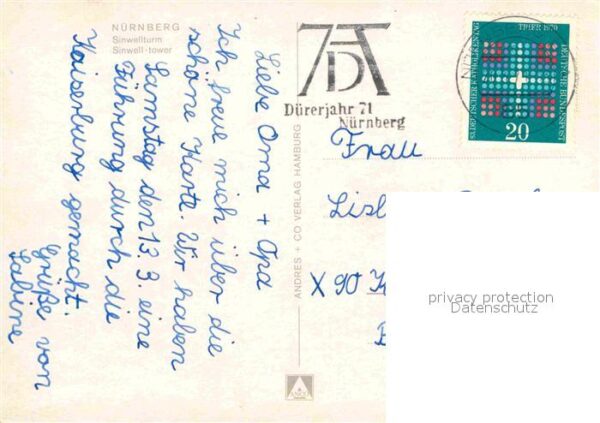 NÜRNBERG
Sinwellturm
Sinwell-tower
Liebe Oma + Opa
Ich freue mich über die
schöne Karte. Wir haben
Samstag den 13.3. eine
Führung durch die
Kaiserburg gemacht.
Grüße von
Sabine
ANDRES + CO VERLAG HAMBURG
Dürerjahr 71
Nürnberg
TRIER 1970
83. DEUTSCHER KATHOLIKENTAG
DEUTSCHE BUNDESPOST
20
Frau
X 90
privacy protection
Datenschutz